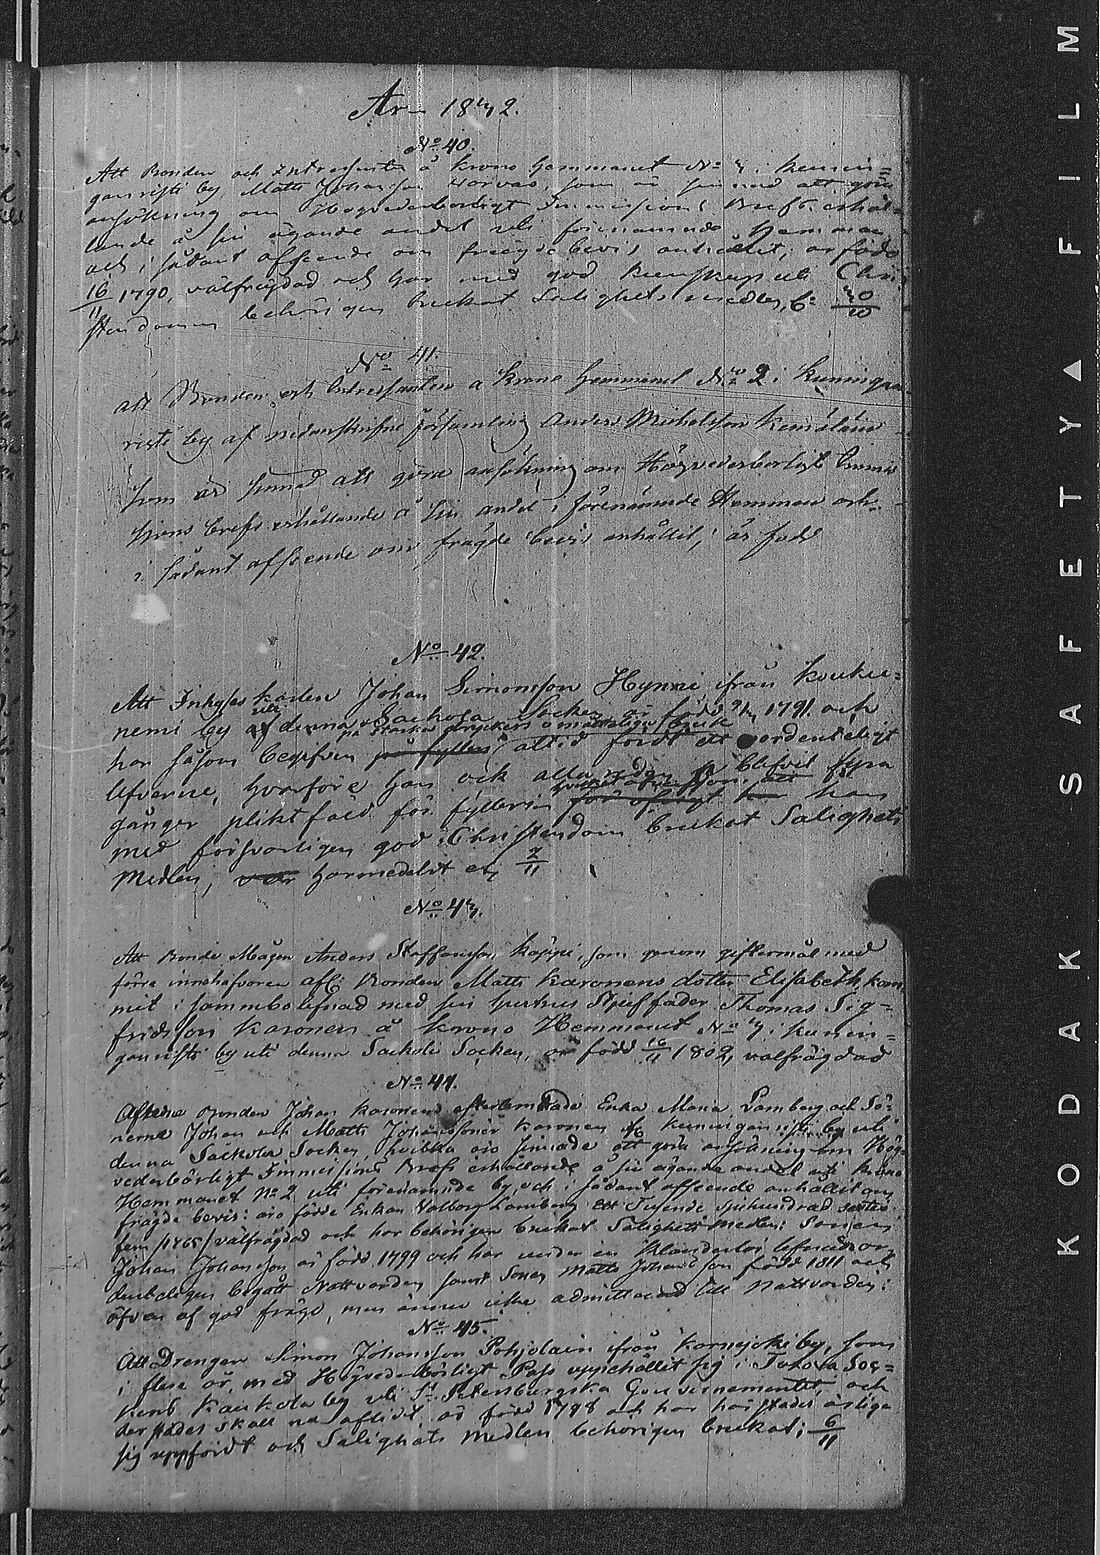 År 1832.
No 40.
Att Bonden och Intressenten å Krono Hemmanet No 3 i Kunin=
ganristi by Matts Johansson Karvas, som är sinnad att göra
ansökning om Högvederborligt Immissions Brefs erhål=
lande å sin ägande andel uti förenämnde Hemman
och i sådant afseende om frägde bevis anhållit; är född
16/11 1790, välfrägdad och har med god kunskap uti Chri=
stendomen behörigen brukat Salighets medlen, b: 30/10
No 41.
att Bonden och Intressenten å Krono Hemmanet No 2 i Kuningan
risti by af nedanskrifne församling Anders Michelsson Kemiläin
som är sinnad att göra ansökning om Högvederborligt Immis
sions brefs erhållande å sin andel i förenämnde Hemman och
i sådant afseende om frägde bevis anhållit, är född
No 42.
Att Inhyses karlen Johan Simonsson Hynni ifrån Kouku=
nemi by uti denna Sackola Socken är född 1791 och
har såsom begifven på starka dryckers omåtteliga bruk altid fördt ett overdenteligt
lefverne, hvarföre han ock blifvit fyra
gånger pliktfäld för fylleri han
med försvarligen god Christendom brukat Salighets
Medlen, varder härmedelst 7/11
No 43.
Att Bonde Mågen Anders Staffansson Käppi, som genom giftermål med
förre innehafvaren af Bonden Matts Karonens dotter Elisabeth kom
mit i sammbolefnad med sin hustrus Stjuffader Thomas Sig=
fridsson Karonen å Krono Hemmanet No 3 i Kunin=
ganristi by uti denna Sackola Socken, är född 16/11 1802, välfrägdad
No 44.
Aflidne Bonden Johan Karonens efterlemnade Enka Maria Lamberg och Sö=
nerne Johan och Matts Johanssöner Karonen af Kuninganristi by uti
denna Sackola Socken, hvilka äro sinnade att göra ansökning om Hög=
vederbörligt Immissions Bref erhållande å sin ägande andel uti Krono
Hemmanet No 2 uti förenämnde by och i sådant afseende anhållit om
frägde bevis: äro förre Enkan Valborg Lamberg Ett Tusende sjuhundrad sextio
fem /1765/ välfrägdad och har behörigen brukat Salighets Medlen; Sonen
Johan Johansson är född 1799 och har under en klanderlös lefnad or
denteligen begått Nattvarden samt Sonen Matts Johansson född 1811 och
äfven af god frägd, men ännu icke admitterad till Nattvarden;
No 45.
Att Drengen Simon Johansson Pohjolain ifrån Kornejoki by, som
i flere år, med Högvederbörligt Pass uppehållit sig i Toxova Soc=
kens Kaukola by uti St Petersburgska Gouvernementet, och
der städes skall na aflidit, är född 1798 och har härstädes ärliga
sig uppfördt och Salighets Medlen behörigen brukat; 6/11
KODAK SAFETY FILM